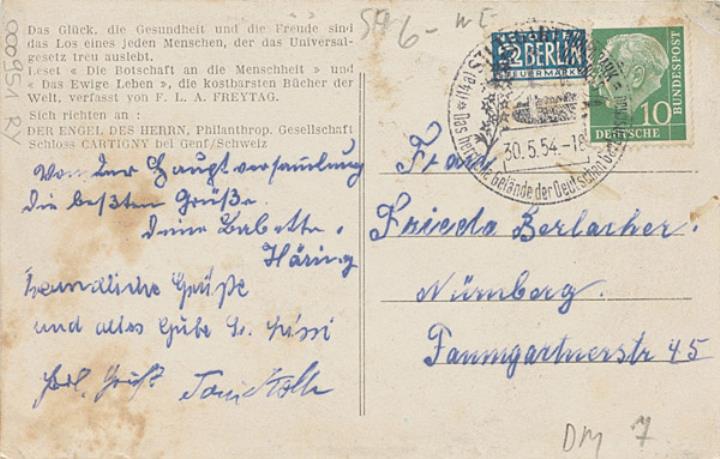 Das Glück, die Gesundheit und die Freude sind
das Los eines jeden Menschen, der das Universal-
gesetz treu auslebt.
Leset « Die Botschaft an die Menschheit » und
« Das Ewige Leben », die kostbarsten Bücher der
Welt, verfasst von F. L. A. FREYTAG.
Sich richten an :
DER ENGEL DES HERRN, Philanthrop. Gesellschaft
Schloss CARTIGNY bei Genf/Schweiz
000951 RY
Von der Hauptversammlung
die beßten Grüße
Deine Babette
Häring
herzliche Grüße
und alles Gute
6-
2 BERLIN
STEUERMARKE
10
DEUTSCHE
BUNDESPOST
(14a)
30.5.54.-18
Das herrliche Gelände der Deutschen
Frau
Frieda Berlacher.
Nürnberg.
Paumgartnerstr 45
DM 7